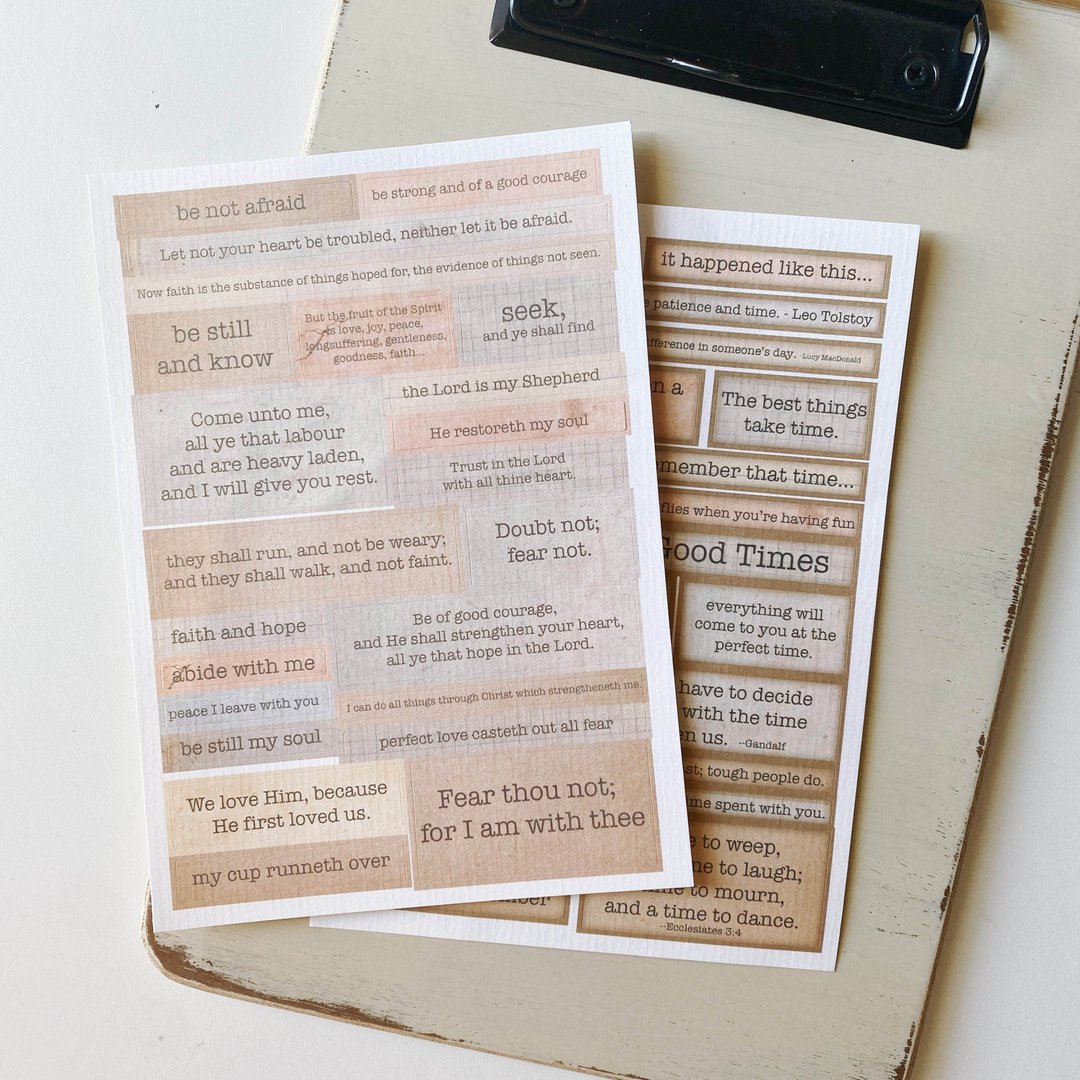 be not afraid
be strong and of a good courage
Let not your heart be troubled, neither let it be afraid.
Now faith is the substance of things hoped for, the evidence of things not seen.
be still
and know
But the fruit of the Spirit
is love, joy, peace,
longsuffering, gentleness,
goodness, faith...
seek,
and ye shall find
the Lord is my Shepherd
Come unto me,
all ye that labour
and are heavy laden,
and I will give you rest.
He restoreth my soul
Trust in the Lord
with all thine heart.
they shall run, and not be weary;
and they shall walk, and not faint.
Doubt not;
fear not.
faith and hope
Be of good courage,
and He shall strengthen your heart,
all ye that hope in the Lord.
abide with me
peace I leave with you
I can do all things through Christ which strengtheneth me.
be still my soul
perfect love casteth out all fear
We love Him, because
He first loved us.
Fear thou not;
for I am with thee
my cup runneth over
it happened like this...
patience and time. - Leo Tolstoy
difference in someone's day. Lucy MacDonald
n a
The best things
take time.
member that time...
flies when you're having fun
Good Times
everything will
come to you at the
perfect time.
have to decide
with the time
en us. --Gandalf
st; tough people do.
ime spent with you.
e to weep,
me to laugh;
time to mourn,
and a time to dance.
--Ecclesiates 3:4